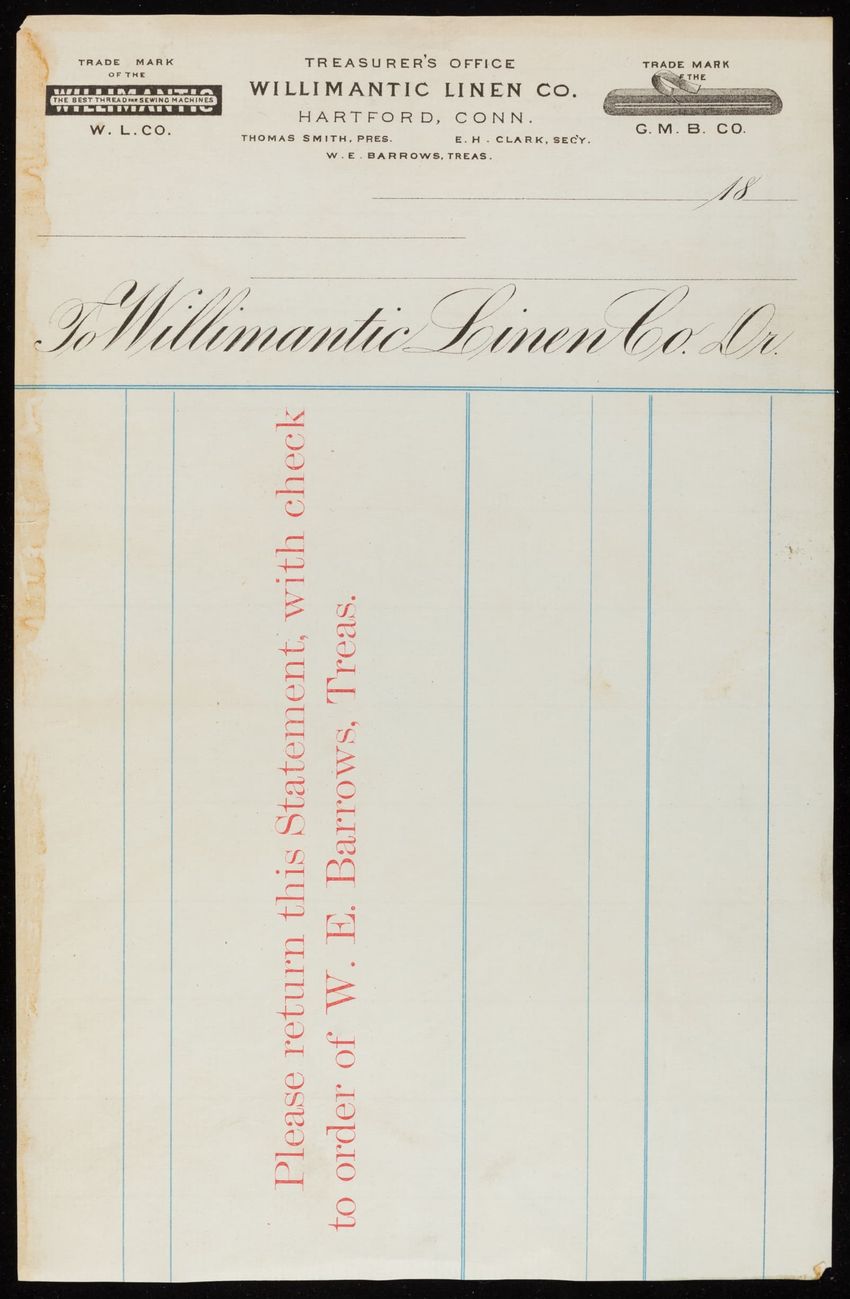 TRADE MARK
OF THE
WILLIMANTIC
THE BEST THREAD FOR SEWING MACHINES
W. L. CO.
TREASURER'S OFFICE
WILLIMANTIC LINEN CO.
HARTFORD, CONN.
THOMAS SMITH, PRES. E. H. CLARK, SEC'Y.
W. E. BARROWS, TREAS.
TRADE MARK
OF THE
G. M. B. CO.
18
To Willimantic Linen Co. Dr.
Please return this Statement, with check
to order of W. E. Barrows, Treas.